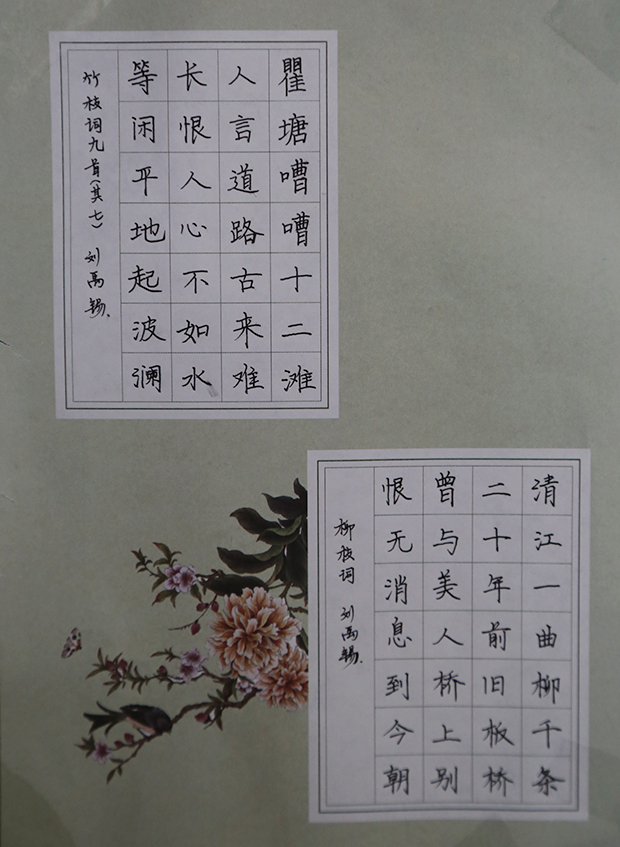 瞿塘嘈嘈十二滩
人言道路古来难
长恨人心不如水
等闲平地起波澜
竹枝词九首(其七) 刘禹锡.
清江一曲柳千条
二十年前旧板桥
曾与美人桥上别
恨无消息到今朝
柳枝词 刘禹锡.